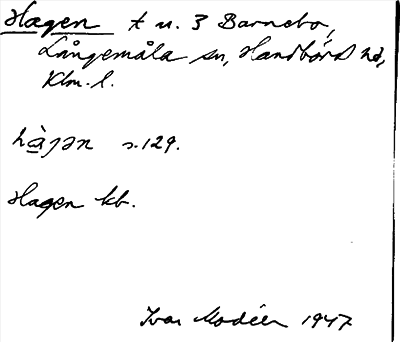 Hagen t u. 3 Barnebo,
Långemåla sn, Handbörd hd,
Klm. l.
hàgən s. 129.
Hagen kb.
Ivar Modéer 1947